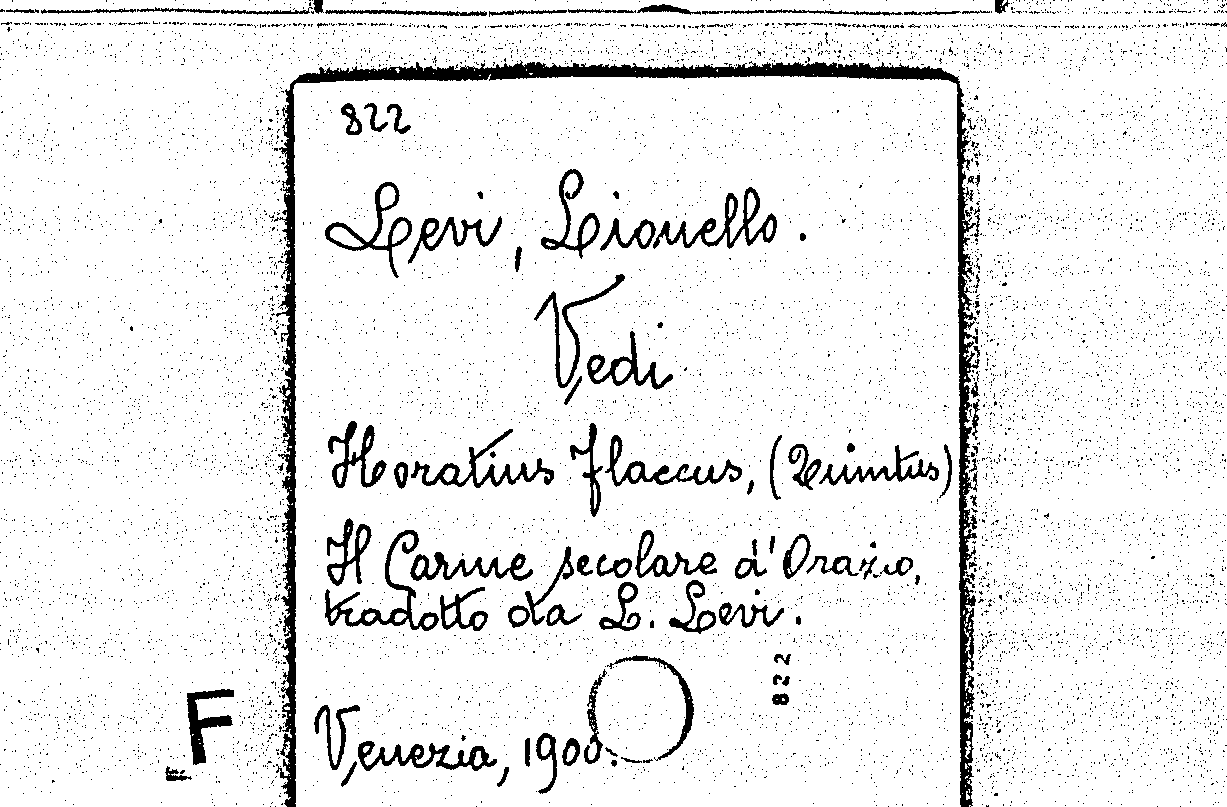 822
Levi, Lionello.
Vedi
Horatius Flaccus, (Quintus)
Il Carme secolare d'Orazio,
tradotto da L. Levi.
822
F
Venezia, 1900.